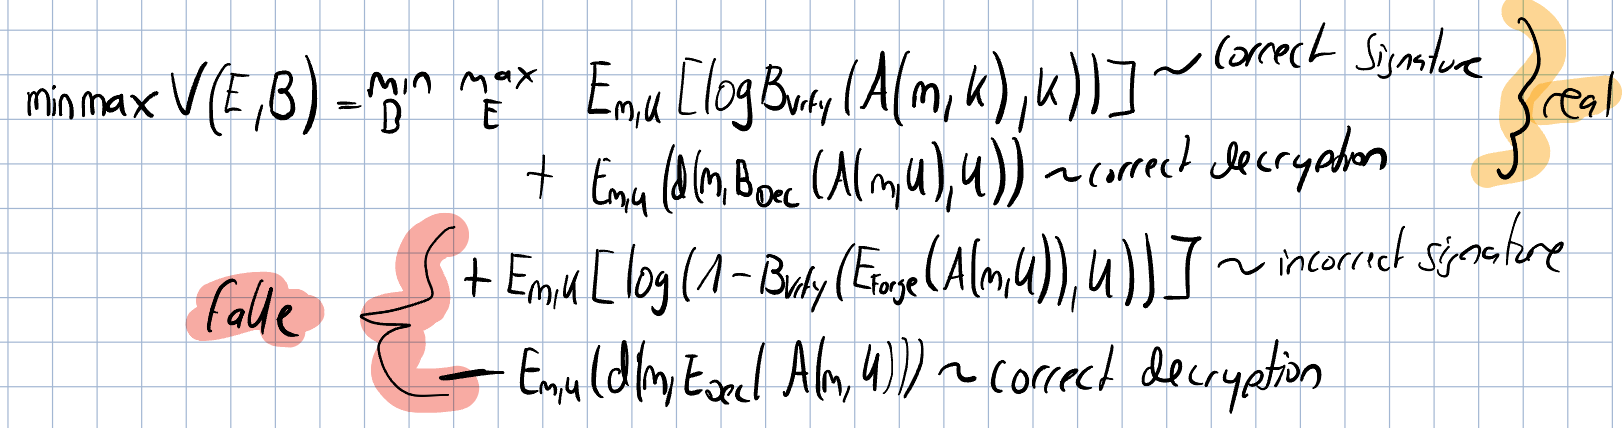 min max V(E,B) = min_B max_E E_{m,k} [log B_{Vrfy} (A(m,k),k))] ~ correct signature } real
+ E_{m,k} (d(m, B_{Dec} (A(m,k),k)) ~ correct decryption
falle { + E_{m,k} [log (1 - B_{Vrfy} (E_{Forge} (A(m,k)),k))] ~ incorrect signature
- E_{m,k} (d(m, E_{Dec}( A(m,k))) ~ correct decryption